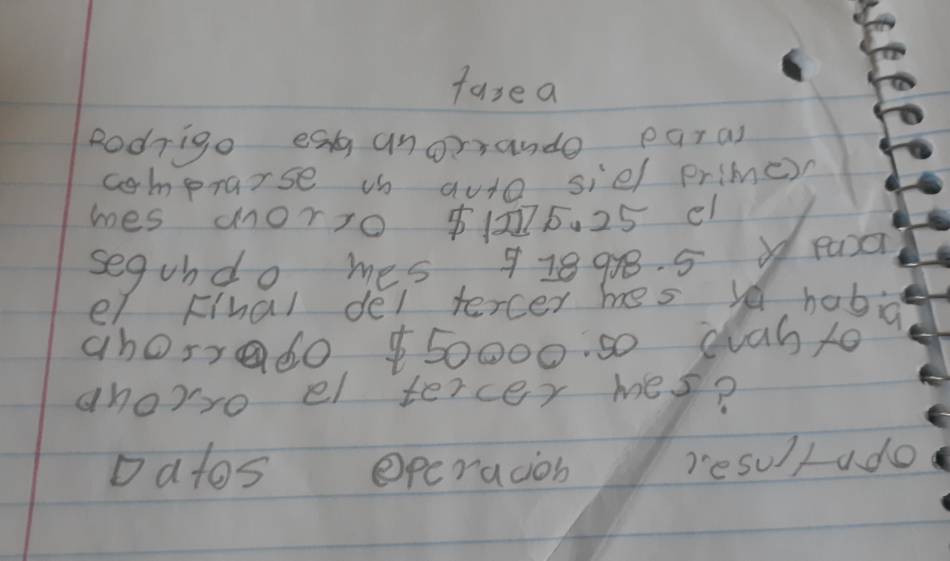 tarea
Rodrigo esta anorrando paras
comprarse un auto si el primer
mes anorro $ 5.25 el
segundo mes $ 18978.5 y para
el Final del tercer mes ya habia
ahorrado $50000.50 cuanto
ahorro el tercer mes?
Datos Operacion resultado